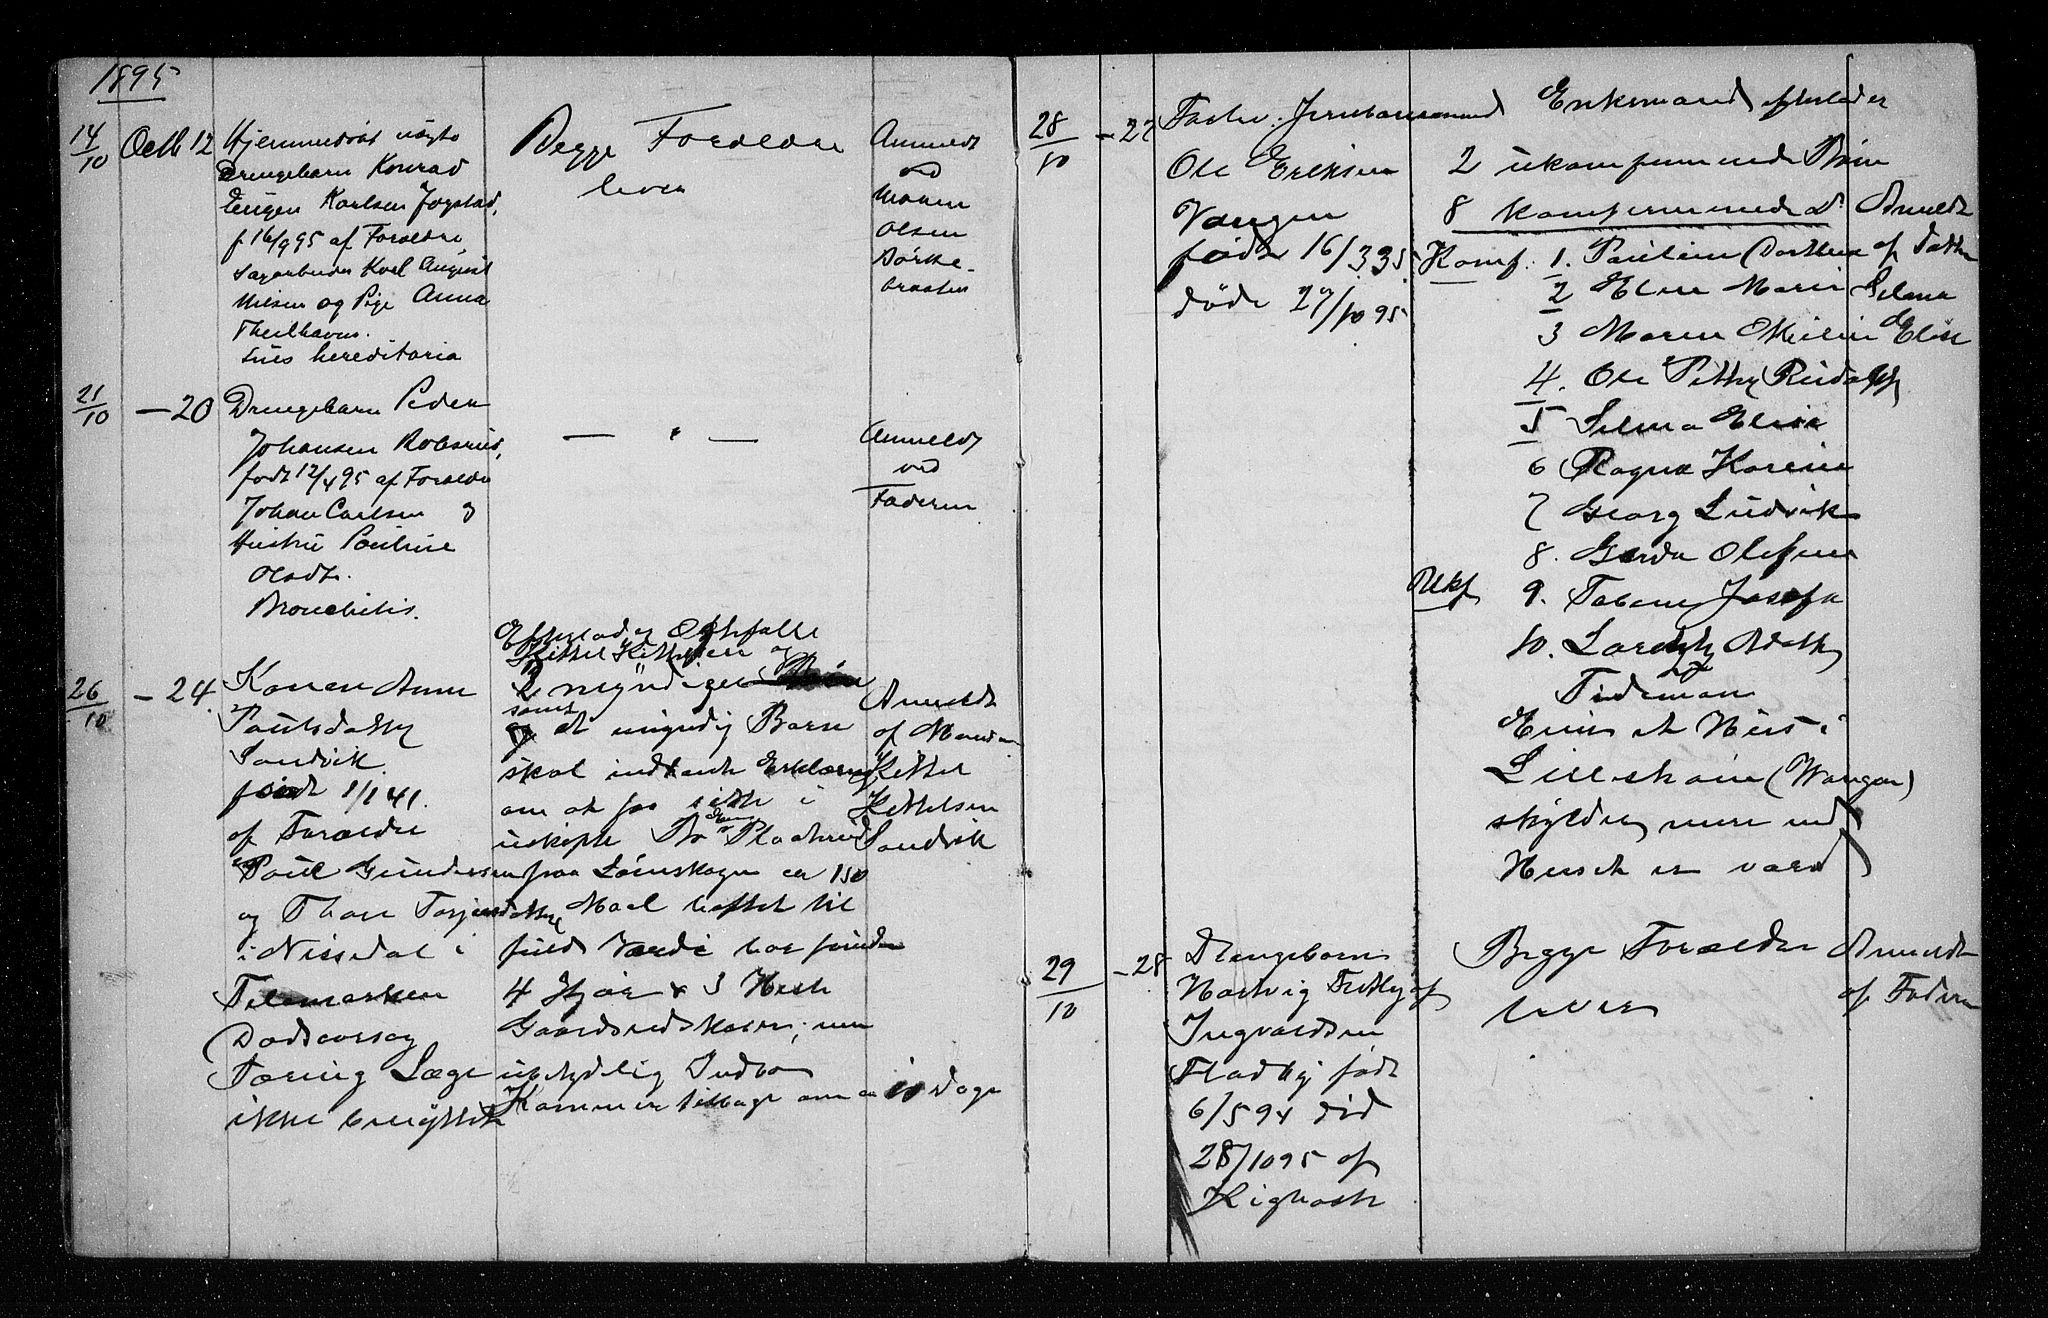 1895
14/10 Octb 12
Hjemmedøbt
Drengebarn Konrad
Eugen Karlsen Jogstad,
f 16/9 95 af Forældre
Sagarbeider Karl August
Nilsen og Pige Anna
Theilhaven.
Lues hereditaria
Begge Forældre
lever
Anmeldt
ved
Maren
Olsen
Børke-
braaten
21/10 — 20
Drengebarn Peder
Johansen Robsrud,
født 12/4 95 af Forældre
Johan Carlsen og
Hustru Pauline
Olsdtr.
Bronchitis.
— " —
Anmeldt
ved
Faderen
26/10 — 24
Karen Anne
Paulsdatter
Sandvik
født 1/1 41.
af Forældre
Paul Gundersen
og Thone Torjusdatter
i Nissedal i
Telemarken
Dødsaarsag
Tæring Læge
ikke benyttet
Efterlader Ægtefælle
Kittel Kittelsen og
2 myndige Børn
samt
og et umyndig Barn
skal indsende Erklæring
om at faa sidde i
uskifte Bo
paa Lørenskogen ca 150
Maal heftet til
fuld Værdi
4 Kjør & 3 Heste
Gaardsredskaber,
ubetydelig Indbo
Kommer tilbage om ca 10 Dage
Anmeldt
af Manden
Kittel
Kittelsen
Sandvik
28/10 — 27
Jernbanemand
Ole Eriksen
Vangen
født 16/3 35
døde 27/10 95
Enkemand efterlader
2 ukonfirmerede Børn
8 konfirmerede d
Konf. 1. Pauline Dorthea
2 Elen Marie
3 Maren Emilie
4. Ole Petter Rudolf
5 Selma Elise
6 Ragna Karine
7 Georg Ludvik
8. Gerda Olefine
Ukf 9. Josefa
10.
Tidemann
Eier et Hus i
Lilleskoien (Wangen)
skylder mere end
Huset er værd
Anmeldt
af Datter
Selma
Elise
29/10 — 28
Drengebarn
Hartvig Fritjof
Ingvaldsen
Fladby født
6/5 94 død
28/10 95 af
Kighoste
Begge Forældre
lever
Anmeldt
af Faderen